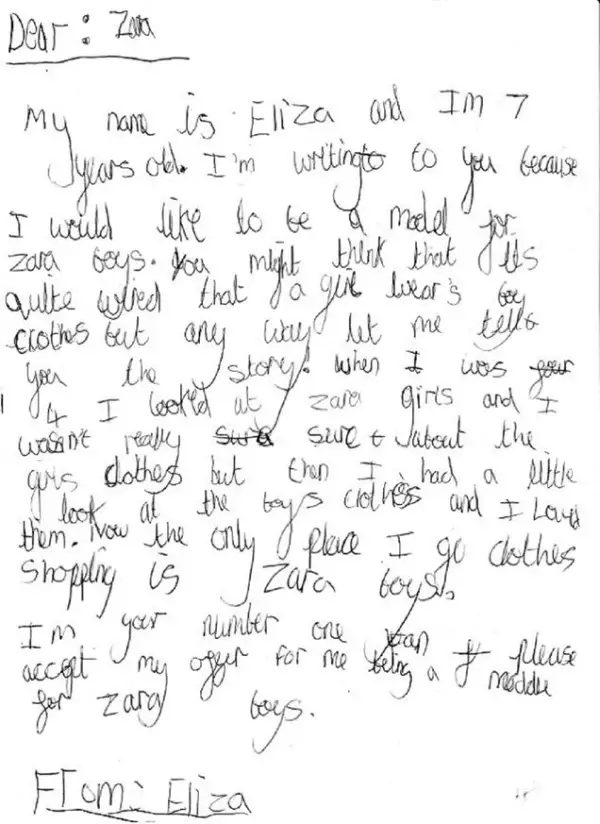 Dear: Zara
My name is Eliza and Im 7
years old. I'm writing to you because
I would like to be a model for
zara boys. you might think that its
quite wired that a girl wear's boy
clothes but any way let me tell
you the story! when I was
4 I looked at zara girls and I
wasn't really sure about the
girls clothes but then I had a little
look at the boys clothes and I Loved
them. Now the only place I go clothes
shopping is Zara boys.
I'm your number one fan please
accept my offer for me being a moddle
for zara boys.
From: Eliza